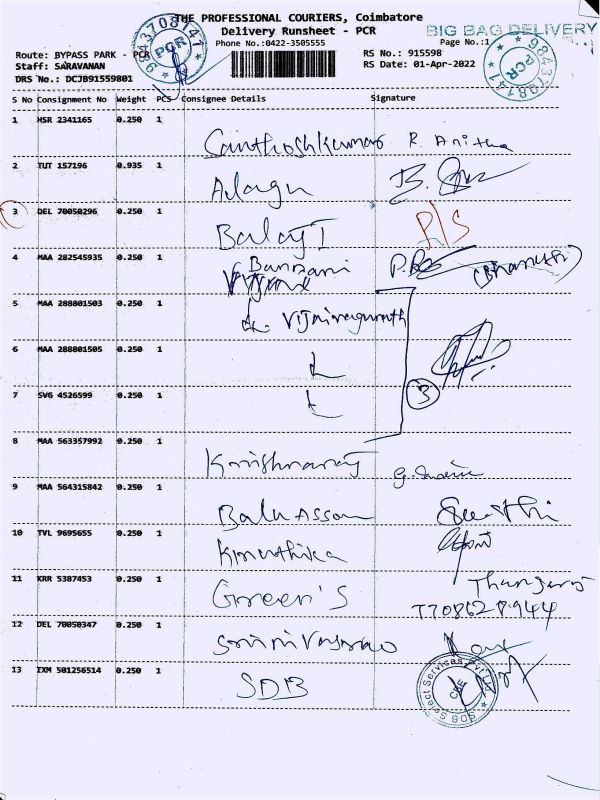 THE PROFESSIONAL COURIERS, Coimbatore
Delivery Runsheet - PCR
BIG BAG DELIVERY
Phone No.:0422-3505555
Page No.:1
Route: BYPASS PARK - PCR
RS No.: 915598
Staff: SARAVANAN
RS Date: 01-Apr-2022
DRS No.: DCJB91559801
9843708141
PCR
9843708141
PCR
S No Consignment No Weight PCS Consignee Details Signature
1 HSR 2341165 0.250 1 Santhoshkumar R. Anitha
2 TUT 157196 0.935 1 Alagu
3 DEL 70050296 0.250 1 Balaji P/S
4 MAA 282545935 0.250 1 Bannari
5 MAA 288801503 0.250 1
6 MAA 288801505 0.250 1
7 SVG 4526599 0.250 1 3
8 MAA 563357992 0.250 1 Krishnaraj
9 MAA 564315842 0.250 1
10 TVL 9695655 0.250 1
11 KRR 5387453 0.250 1 Green's Thangaraj
12 DEL 70050347 0.250 1 Srinivasarao
13 IXM 501256514 0.250 1 SDB
SOS Select Services Pvt Ltd
CBE